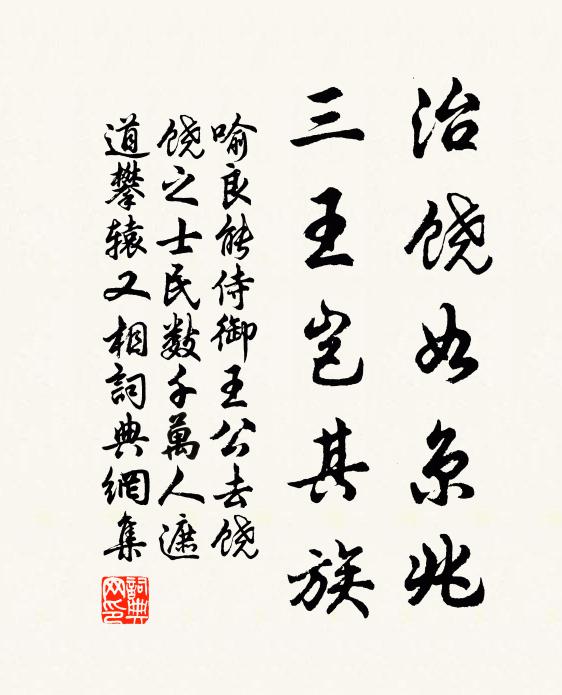 治饶如京兆
三王岂其族
喻良能侍御王公去饶
饶之士民数千萬人遮
道攀辕又相詞典網集
詞典
网印